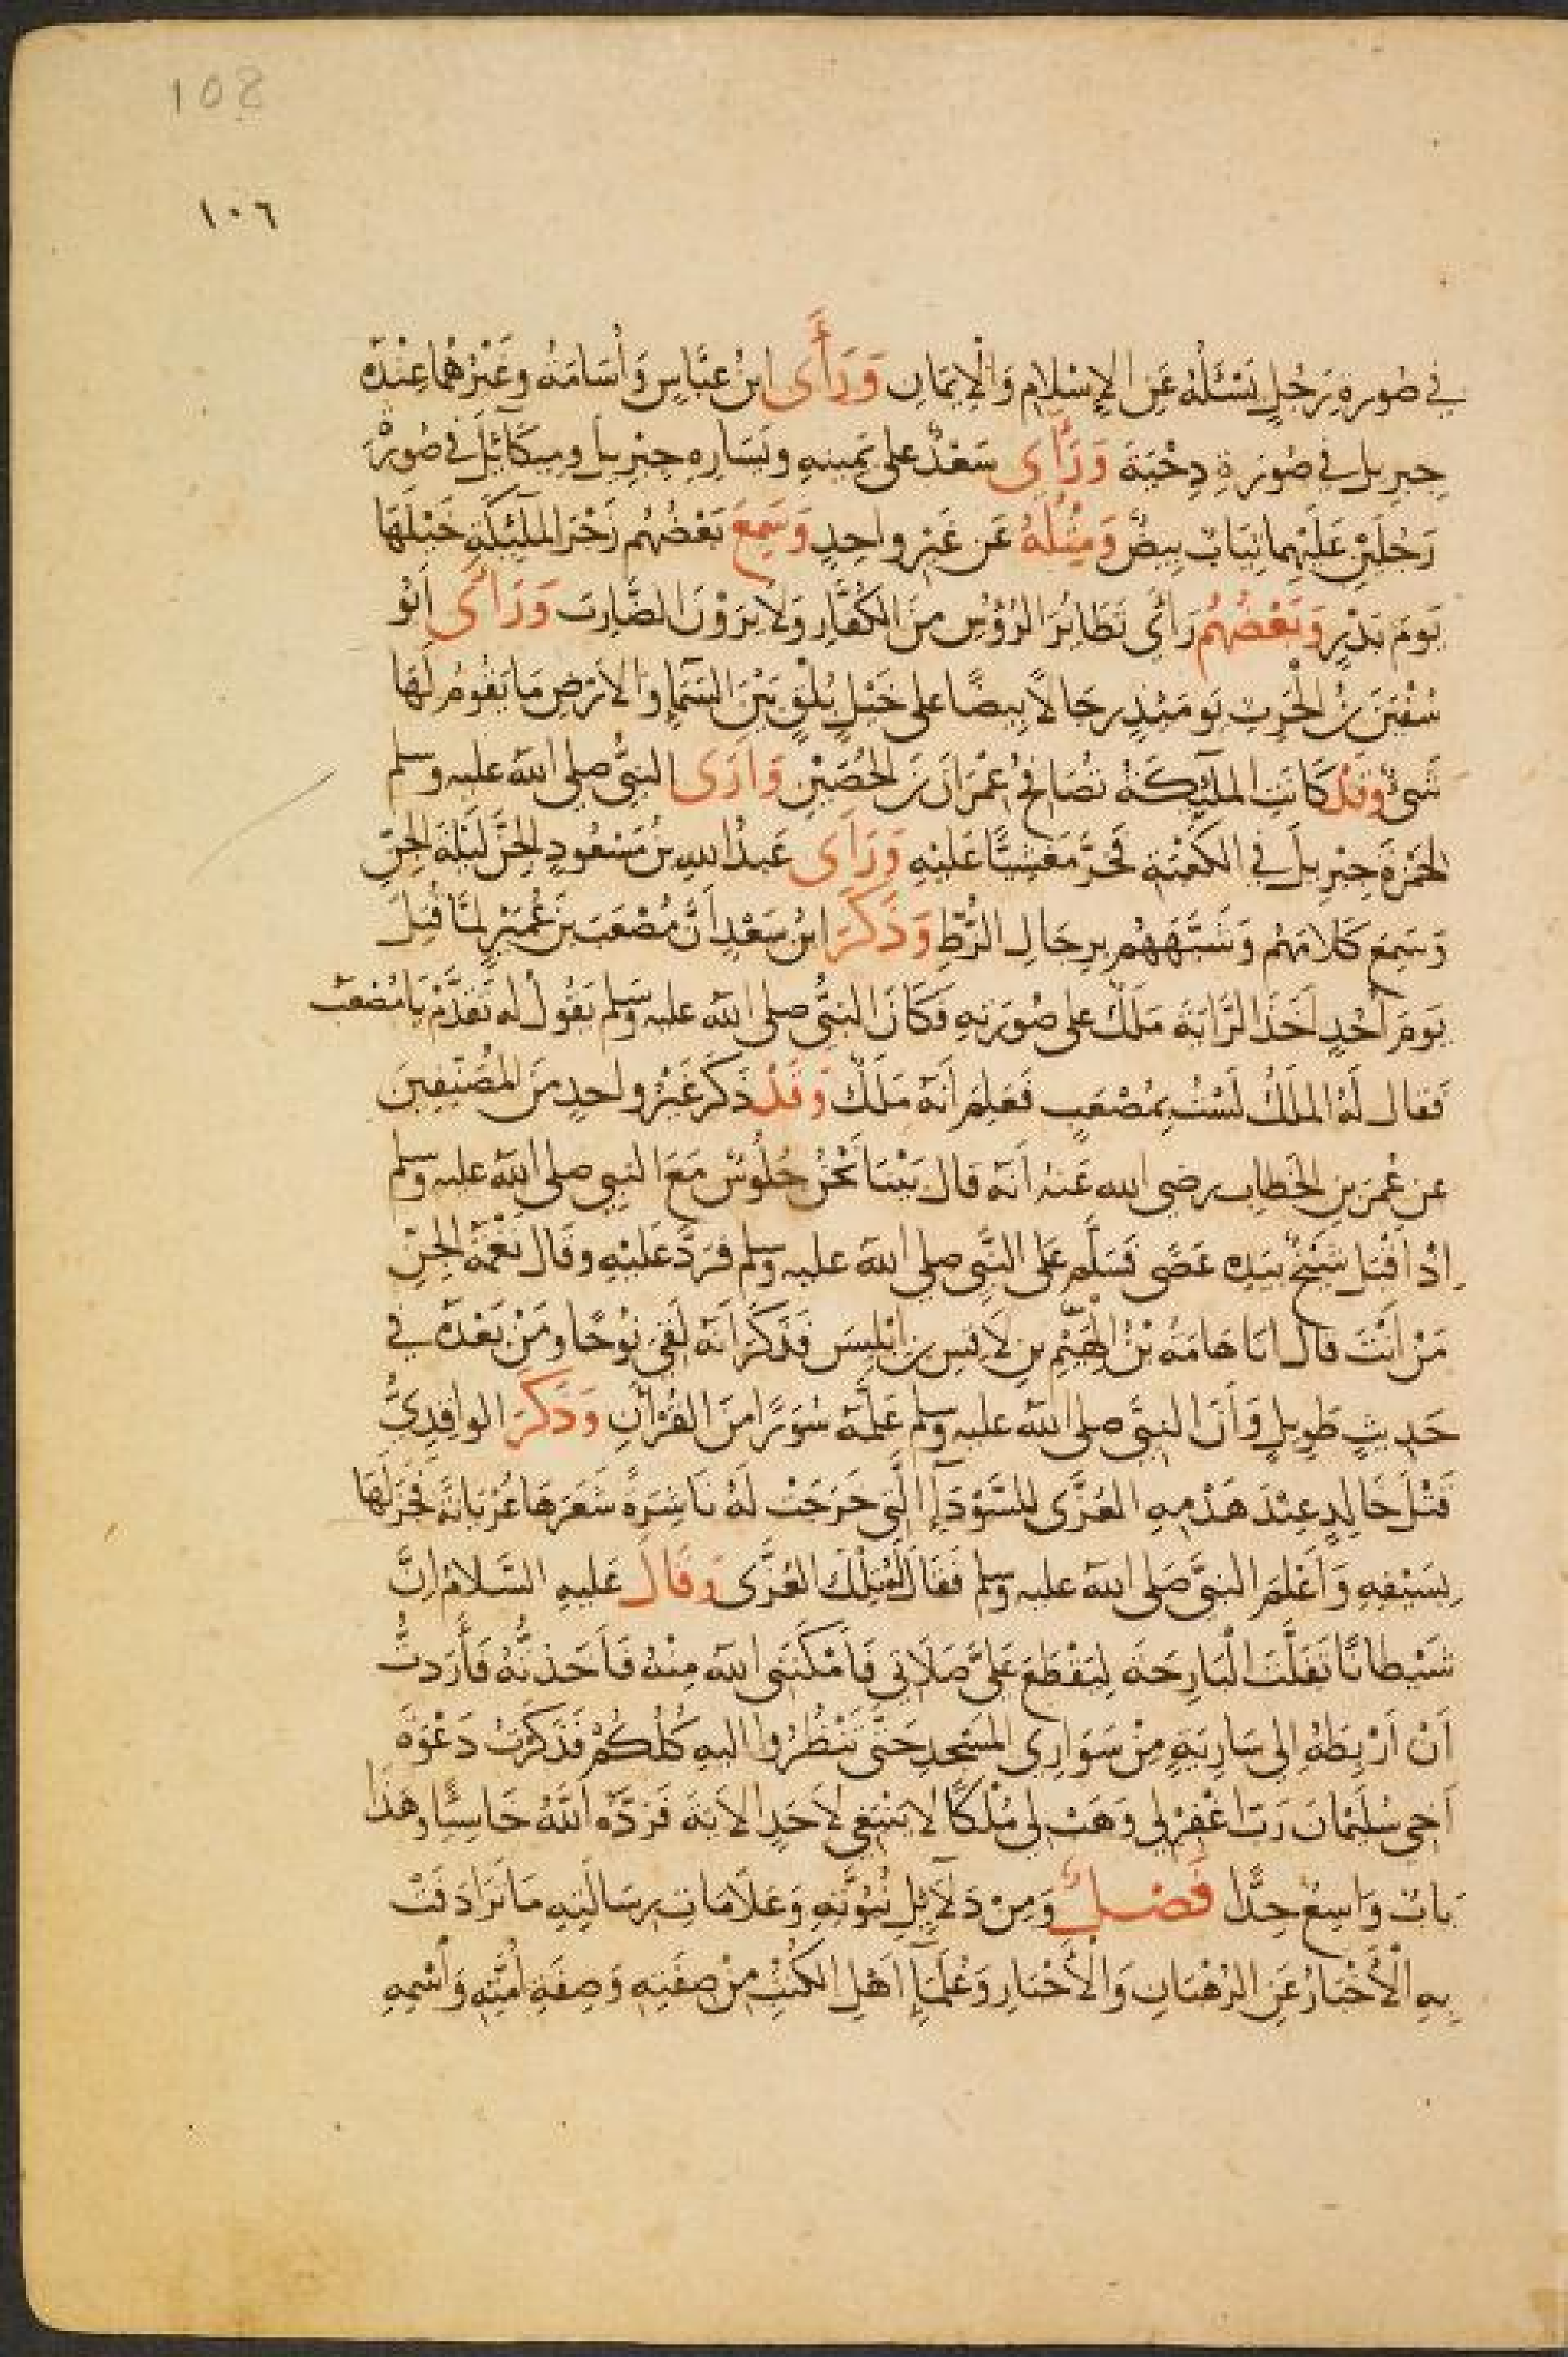 108
١٠٦
في صُورةِ رَجُلٍ يَسْئَلُهُ عَنِ الإِسْلامِ وَالْإِيمَانِ وَرَأَى ابنُ عبَّاسٍ وَأُسَامَةُ وغَيْرُهُما عِنْدَهُ
جبريل في صُورَةِ دِحْيَةَ وَرَأَى سَعْدٌ على يَمينِهِ ويَسَارِهِ جِبْرِيلَ وميكَآئِلَ في صُورَةِ
رَجُلَيْنِ عَلَيْهِما ثِيَابٌ بِيضٌ وَمِثْلُهُ عَن غَيْرِ واحِدٍ وَسَمِعَ بَعْضُهُم زَجْرَ الملٰئِكَةِ خَيْلَهَا
يَومَ بَدْرٍ وَبَعْضُهُم رَأَى تَطَايُرَ الرُّؤُسِ مِنَ الكُفَّارِ وَلَا يَرَوْنَ الضَّارِبَ وَرَأَى أَبُو
سُفْيَنَ بْنُ الْحَرِثِ يَومَئِذٍ رِجَالًا بِيضًا على خَيْلٍ بُلْقٍ بَيْنَ السَّمَآءِ وَالأَرضِ مَا يَقُومُ لَهَا
شَىْءٌ وَقَدْ كَانَتِ الملٰٓئِكَةُ تُصَافِحُ عِمْرَانَ بْنَ الحُصَيْنِ وَأَرَى النبيُّ صلى الله عليه وسلم
لحَمْزَةَ جِبْرِيلَ في الكَعْبَةِ فَخَرَّ مَغْشِيًّا عَلَيْهِ وَرَأَى عَبدُ اللهِ بنُ مَسْعُودٍ الجِنَّ لَيْلَةَ الجِنِّ
وَسَمِعَ كَلَامَهُم وَشَبَّهَهُم بِرِجَالِ الزُّطِّ وَذَكَرَ ابنُ سَعْدٍ أَنَّ مُصْعَبَ بنَ عُمَيْرٍ لمَّا قُتِلَ
يَومَ أُحُدٍ أَخَذَ الرَّايَةَ مَلَكٌ على صُورَتِهِ فَكَانَ النبيُّ صلى الله عليه وسلم يَقُولُ له تَقَدَّمْ يَا مُصْعَبُ
فَقَال لَهُ الملَكُ لَسْتُ بِمُصْعَبٍ فَعَلِمَ أَنَّهُ مَلَكٌ وَقَدْ ذَكَرَ غَيْرُ واحدٍ مِنَ المُصَنِّفِينَ
عن عُمَرَ بنِ الخَطابِ رضي الله عَنهُ أَنَّهُ قال بَيْنَا نَحْنُ جُلُوسٌ مَعَ النبي صلى الله عليه وسلم
إِذْ أَقْبَلَ شَيْخٌ بِيَدِهِ عَصًى فَسَلَّمَ عَلى النَّبي صلى الله عليه وسلم فَرَدَّ عَلَيْهِ وقَال نَغْمَةُ الجِنِّ
مَنْ أَنْتَ قال أنَا هَامَةُ بْنُ الهَيْمِ بنِ لَاقِسِ بن إِبْلِيسَ فَذَكَرَ أَنَّهُ لَقِيَ نُوحًا ومَنْ بَعْدَهُ في
حَدِيثٍ طَوِيلٍ وَأَنَّ النبيَّ صلى الله عليه وسلم عَلَّمَهُ سُوَرًا مِنَ القُرْآنِ وَذَكَرَ الواقِدِيُّ
قَتْلَ خَالِدٍ عِنْدَ هَدْمِهِ العُزَّى للسَّوْدَآءِ الَّتِي خَرَجَتْ لَهُ نَاشِرَةً شَعَرَهَا عُرْيَانَةً فَجَزَلَهَا
بِسَيْفِهِ وَأَعْلَمَ النبيَّ صَلى الله عليه وسلم فَقَال لهُ تِلْكَ العُزَّى وَقَالَ عَلَيهِ السَّلامُ إِنَّ
شَيْطَانًا تَفَلَّتَ الْبَارِحَةَ لِيَقْطَعَ عَلَيَّ صَلَاتِي فَأَمْكَنَنِى اللهُ مِنْهُ فَأَخَذْتُهُ فَأَرَدتُّ
أَنْ أَرْبِطَهُ إلى سَارِيَةٍ مِنْ سَوَارِي المَسْجِدِ حَتَّى تَنْظُرُوا إليهِ كُلُّكُمْ فَذَكَرْتُ دَعْوَةَ
أَخِى سُلَيْمَانَ رَبِّ اغْفِرْ لِي وَهَبْ لِي مُلْكًا لا يَنْبَغِي لأَحَدٍ الأيَةَ فَرَدَّهُ اللَّهُ خَاسِئًا وهَذَا
بَابٌ وَاسِعٌ جِدًّا فَصْلٌ وَمِنْ دَلَآئِلِ نُبُوَّتِهِ وَعَلَامَاتِ رِسَالَتِهِ مَا تَرَادَفَتْ
بِهِ الْأَخْبَارُ عَنِ الرُّهْبَانِ وَالْأَحْبَارِ وَعُلَمَآءِ أَهْلِ الكُتُبِ مِنْ صِفَتِهِ وَصِفَةِ أُمَّتِهِ وَاسْمِهِ